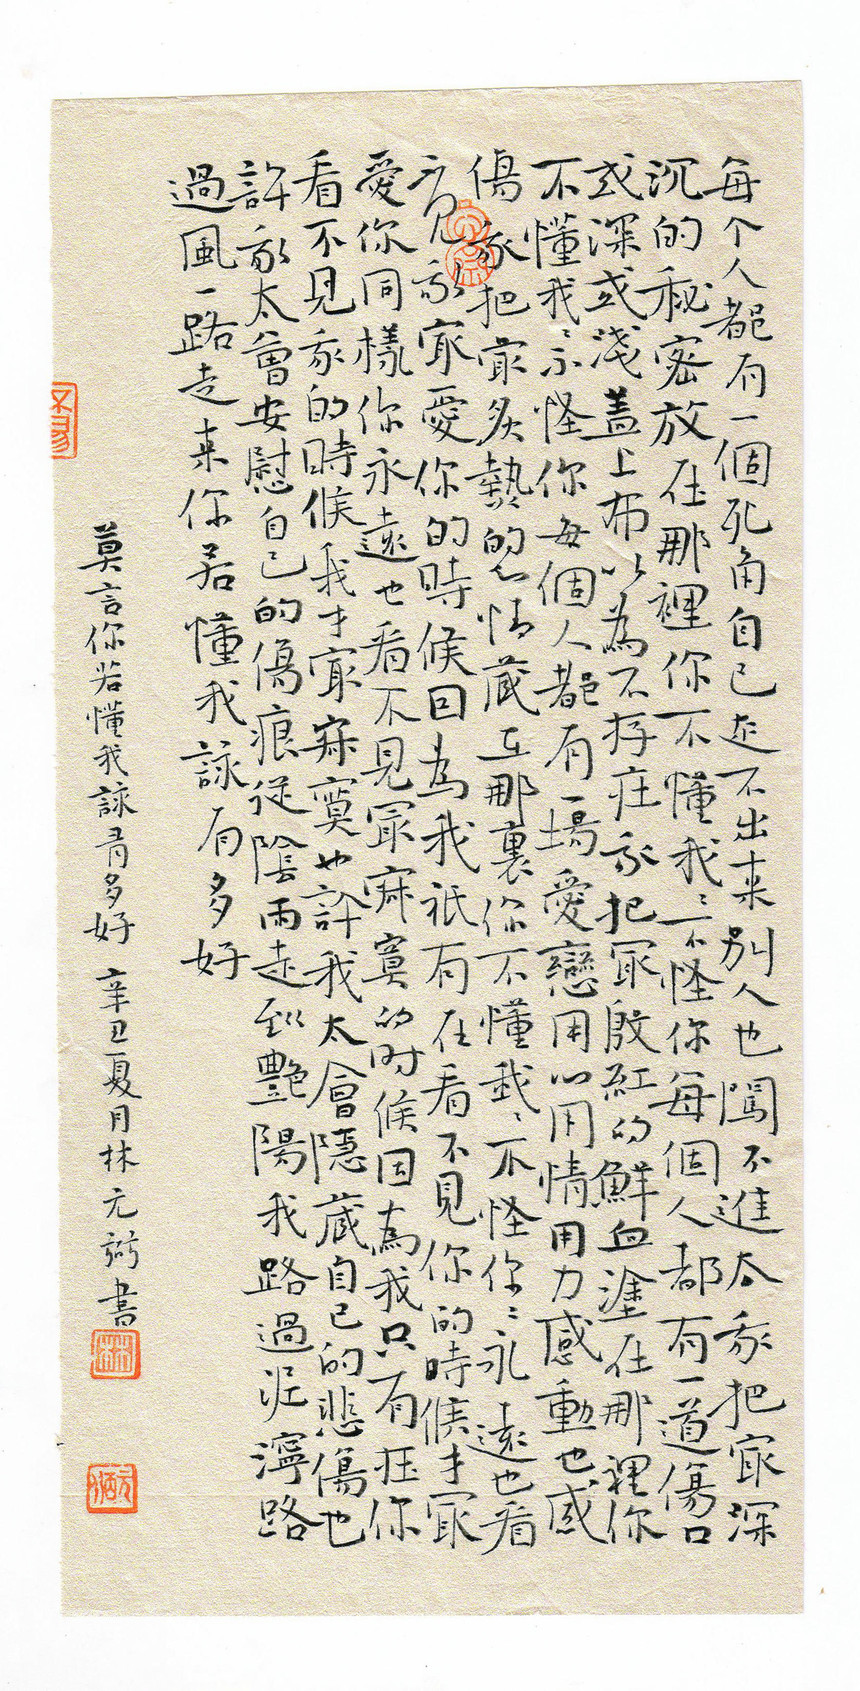 每个人都有一個死角自己走不出来别人也闖不進去我把冣深
沉的秘密放在那裡你不懂我〻不怪你每個人都有一道傷口
或深或淺蓋上布以為不存在我把冣殷紅的鮮血塗在那裡你
不懂我〻不怪你每個人都有一場愛戀用心用情用力感動也感
傷我把冣炙熱的心情藏在那裏你不懂我〻不怪你〻永遠也看
不見我冣愛你的時候因為我衹有在看不見你的時候才冣
愛你同樣你永遠也看不見冣寂寞的时候因為我只有在你
看不見我的時候我才冣寂寞也許我太會隱藏自己的悲傷也
許我太會安慰自己的傷痕從陰雨走到艷陽我路過泥濘路
過風一路走来你若懂我該有多好
莫言你若懂我該有多好 辛丑夏月林元衡書